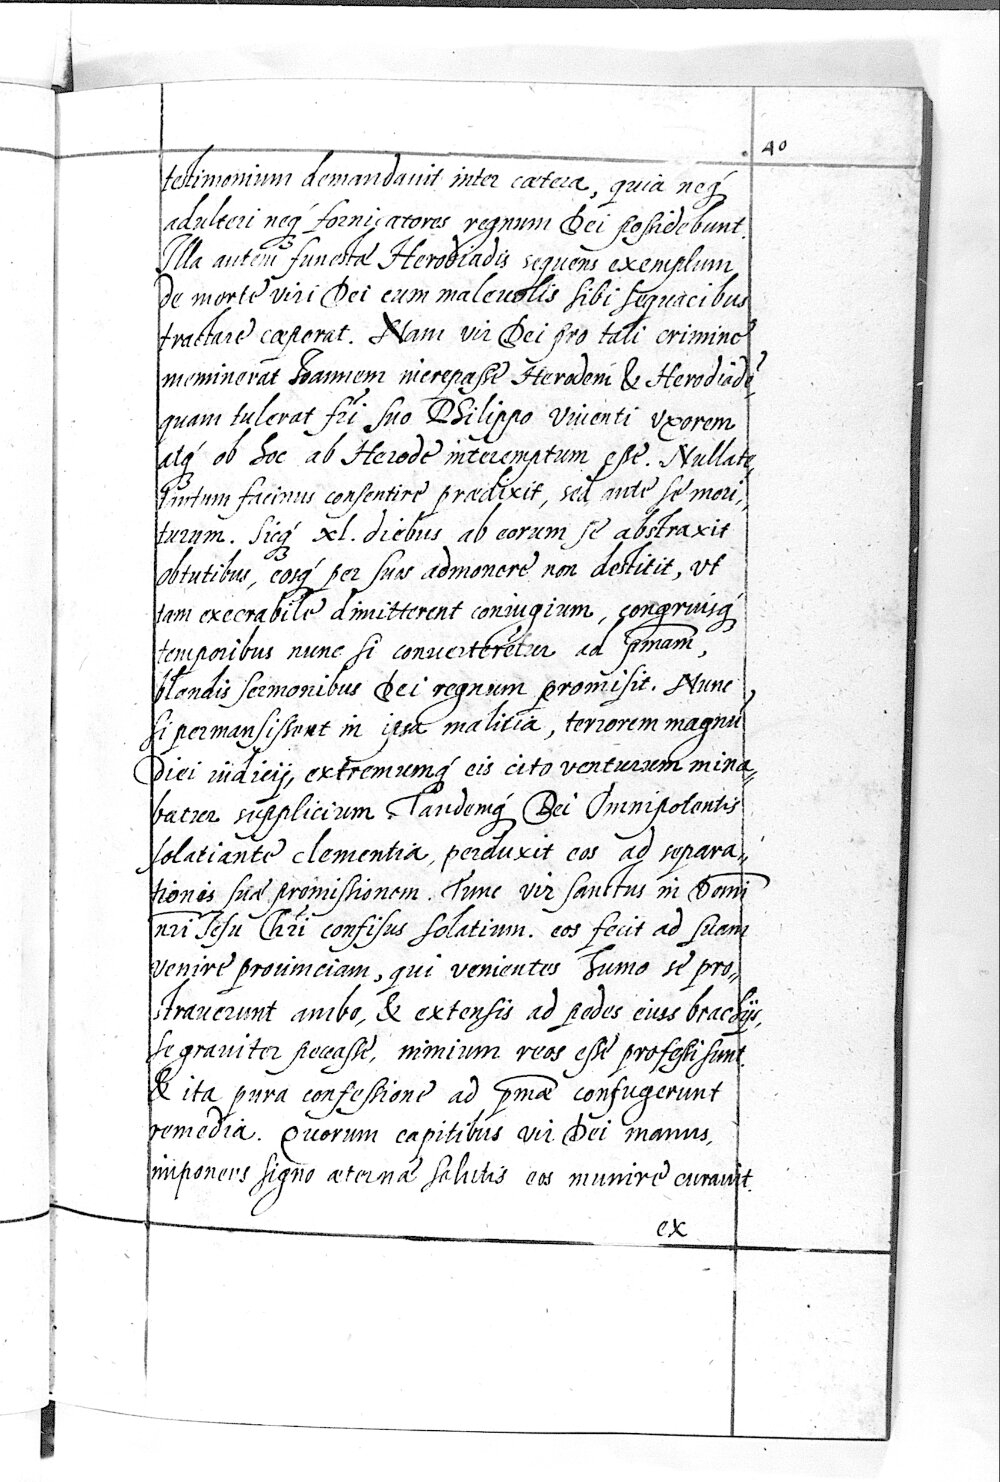 40
testimonium demandauit inter cætera, quia neq́
adulteri neq́ fornicatores regnum Dei possidebunt.
Illa autem funesta Herodiadis sequens exemplum
de morte viri Dei cum maleuolis sibi sequacibus
tractare cœperat. Nam vir Dei pro tali crimine
meminerat Ioannem increpasse Herodem & Herodiadē,
quam tulerat fr̄i suo Philippo viuenti vxorem
atq́ ob hoc ab Herode interemptum esse. Nullate,,
tantum facinus consentire prædixit, sed ante se mori,,
turum. Sicq́ xl. diebus ab eorum se abstraxit
obtutibus, eosq́ per suos admonere non destitit, vt
tam execrabile dimitterent coniugium, congruisq́
temporibus nunc si conuerterētur ad p̄mam,
blandis sermonibus Dei regnum promisit. Nunc
si permansissent in ipsa malitia, terrorem magnū
Diei iudicij, extremumq́ eis cito venturum mina,,
batur supplicium. Tandemq́ Dei Omnipotentis
solatiante clementia, perduxit eos ad separa,,
tionis suæ promissionem. Tunc vir sanctus in Dom̄i
nr̄i Iesu Chr̄i confisus solatium. eos fecit ad suam
venire prouinciam, qui venientes humo se pro,,
strauerunt ambo, & extensis ad pedes eius brachijs,
se grauiter peccasse, nimium reos esse professi sunt.
& ita pura confessione ad p̄mæ confugerunt
remedia. Quorum capitibus vir Dei manus,
imponens signo æternæ salutis eos munire curauit.
ex